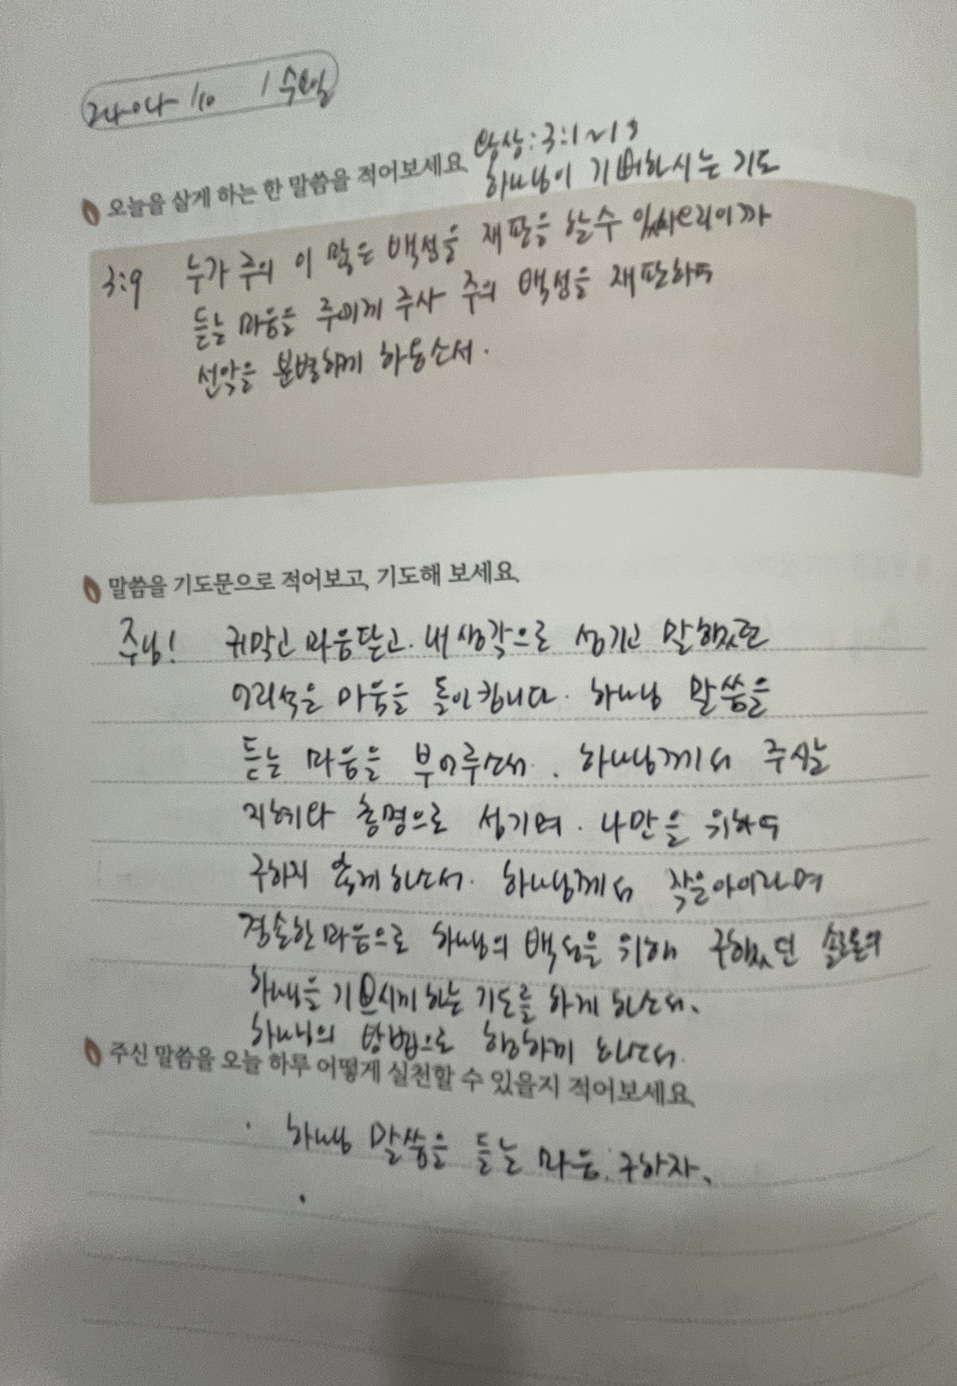 수요일
왕상:3:1~13
오늘을 살게 하는 한 말씀을 적어보세요.
하나님이 기뻐하시는 기도
3:9 누가 주의 이 많은 백성을 재판을 할수 있사오리이까
듣는 마음을 주에게 주사 주의 백성을 재판하여
선악을 분별하게 하옵소서.
말씀을 기도문으로 적어보고, 기도해 보세요.
주님! 귀막고 마음닫고. 내 생각으로 섬기고 말했던
어리석은 마음을 돌이킵니다. 하나님 말씀을
듣는 마음을 부어주소서. 하나님께서 주시는
지혜와 총명으로 섬기며. 나만을 위하여
구하지 않게 하소서. 하나님께서 작은아이라며
겸손한 마음으로 하나님의 백성을 위해 구했던 솔로몬의
하나님을 기쁘시게 하는 기도를 하게 하소서.
하나님의 방법으로 행하게 하소서.
주신 말씀을 오늘 하루 어떻게 실천할 수 있을지 적어보세요.
· 하나님 말씀을 듣는 마음. 구하자.